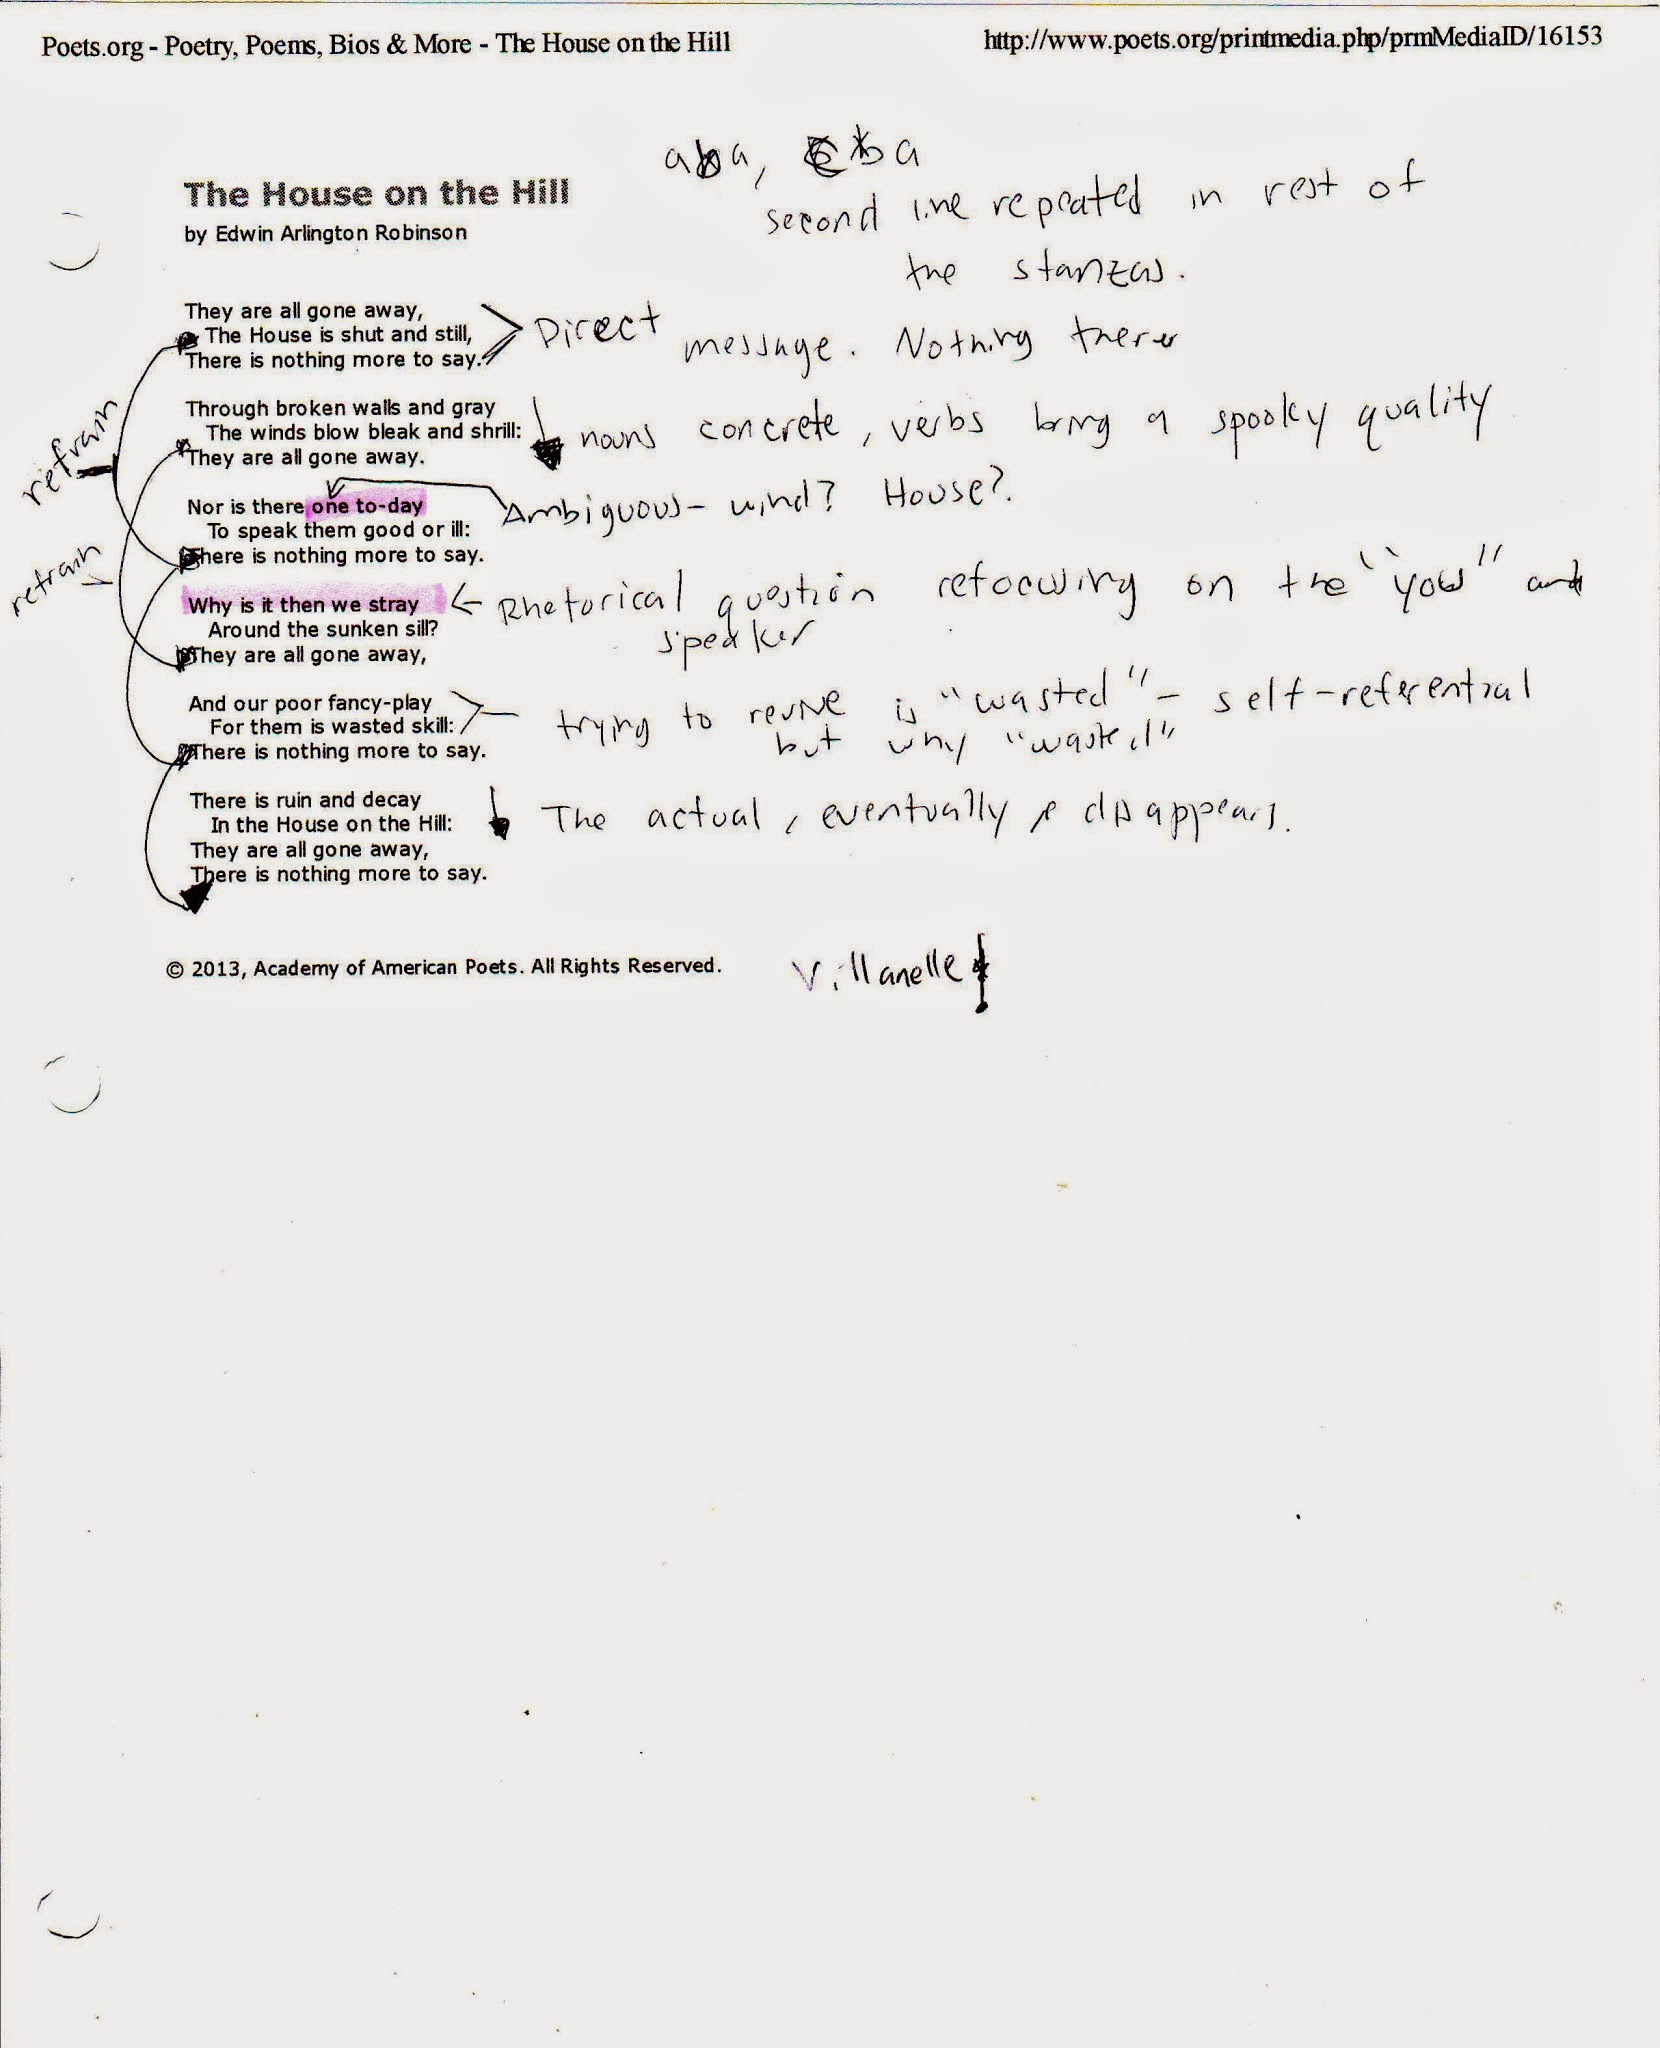 Poets.org - Poetry, Poems, Bios & More - The House on the Hill
http://www.poets.org/printmedia.php/prmMediaID/16153
aba, ba
second line repeated in rest of
the stanzas.
The House on the Hill
by Edwin Arlington Robinson
They are all gone away,
The House is shut and still,
There is nothing more to say.
Direct message. Nothing there
Through broken walls and gray
The winds blow bleak and shrill:
They are all gone away.
nouns concrete, verbs bring a spooky quality
refrain
Nor is there one to-day
To speak them good or ill:
There is nothing more to say.
Ambiguous- wind? House?.
refrain
Why is it then we stray
Around the sunken sill?
They are all gone away,
Rhetorical question refocusing on the "you" and
speaker
And our poor fancy-play
For them is wasted skill:
There is nothing more to say.
trying to revive is "wasted" - self-referential
but why "wasted"
There is ruin and decay
In the House on the Hill:
They are all gone away,
There is nothing more to say.
The actual, eventually disappears.
© 2013, Academy of American Poets. All Rights Reserved.
Villanelle